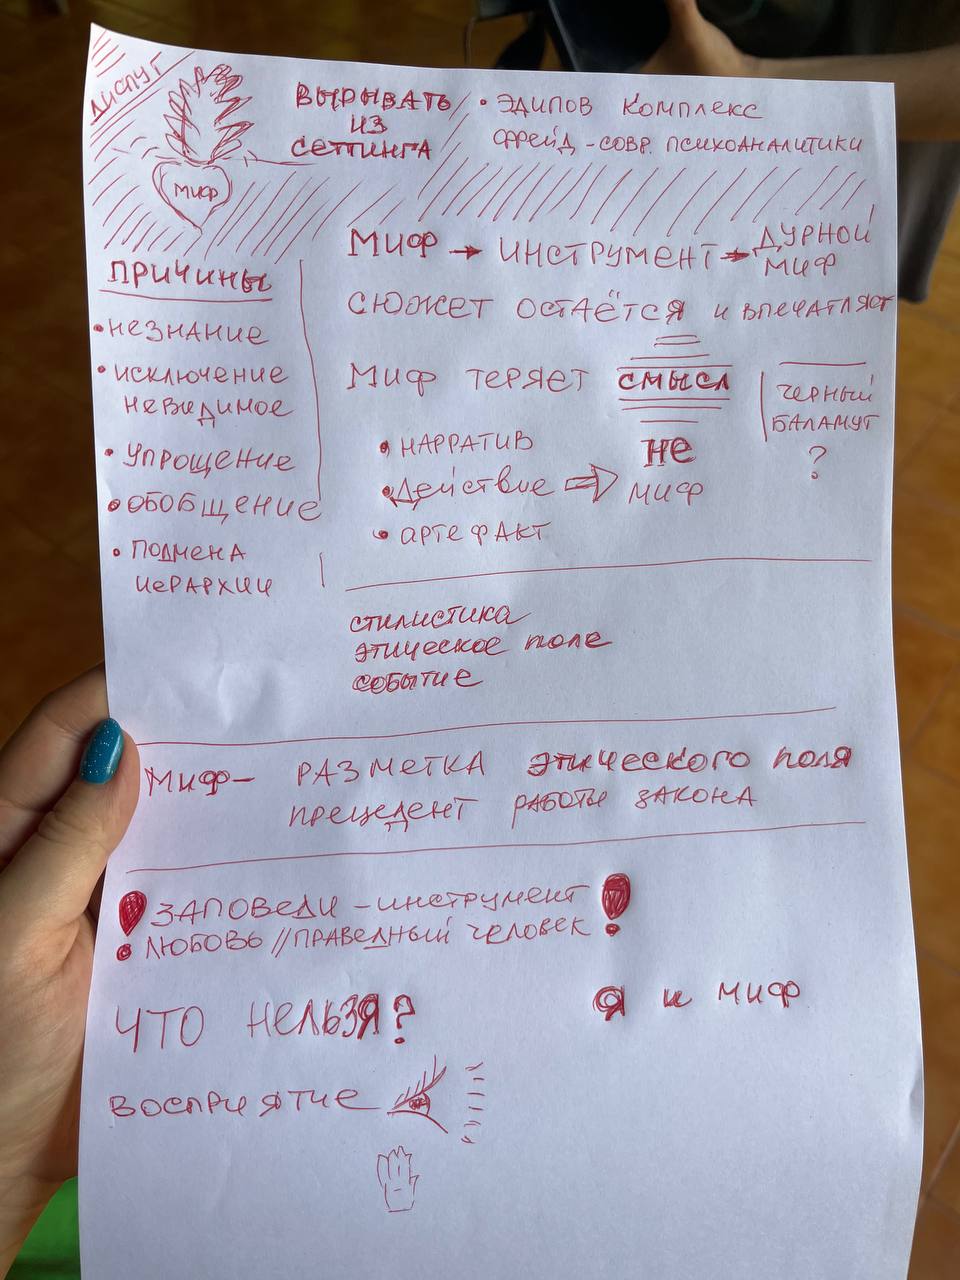 ДИСПУТ
миф
ВЫРЫВАТЬ
ИЗ
СЕТТИНГА
• ЭДИПОВ КОМПЛЕКС
ФРЕЙД - СОВР. ПСИХОАНАЛИТИКИ
ПРИЧИНЫ
• НЕЗНАНИЕ
• ИСКЛЮЧЕНИЕ
НЕВИДИМОЕ
• УПРОЩЕНИЕ
• ОБОБЩЕНИЕ
• ПОДМЕНА
ИЕРАРХИИ
МИФ → ИНСТРУМЕНТ → ДУРНОЙ
МИФ
СЮЖЕТ ОСТАЁТСЯ И ВПЕЧАТЛЯЕТ
МИФ ТЕРЯЕТ СМЫСЛ
ЧЕРНЫЙ
БАЛАМУТ
?
• НАРРАТИВ
• ДЕЙСТВИЕ ⇒ НЕ
МИФ
• АРТЕФАКТ
СТИЛИСТИКА
ЭТИЧЕСКОЕ ПОЛЕ
СОБЫТИЕ
МИФ – РАЗМЕТКА ЭТИЧЕСКОГО ПОЛЯ
ПРЕЦЕДЕНТ РАБОТЫ ЗАКОНА
! ЗАПОВЕДИ – ИНСТРУМЕНТ !
ЛЮБОВЬ // ПРАВЕДНЫЙ ЧЕЛОВЕК
ЧТО НЕЛЬЗЯ?
Я и МИФ
ВОСПРИЯТИЕ